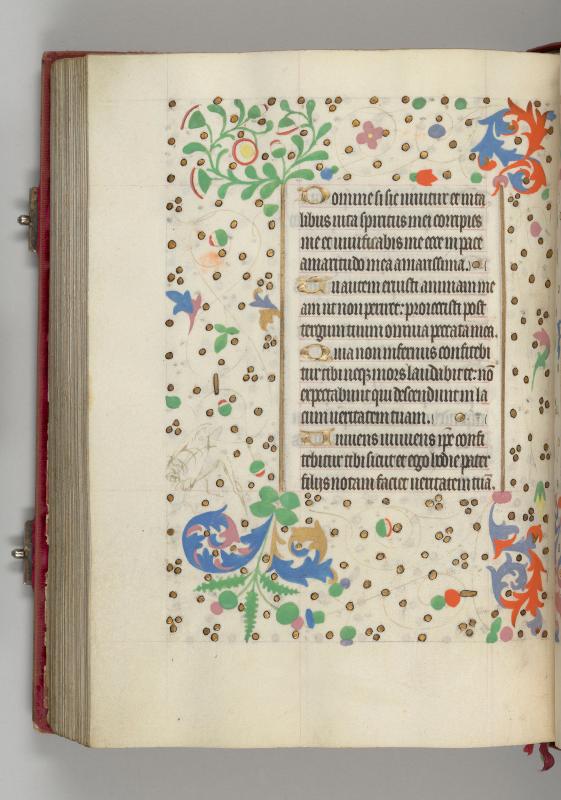 Domine si sic vivitur et in ta
libus vita spiritus mei corripies
me et vivificabis me ecce in pace
amaritudo mea amarissima.
Tu autem eruisti animam me
am ut non periret: proiecisti post
tergum tuum omnia peccata mea.
Quia non infernus confitebi
tur tibi neqz mors laudabit te: nō
expectabunt qui descendunt in la
cum veritatem tuam.
Vivens vivens ip̄e confi
tebitur tibi sicut et ego hodie pater
filijs notam faciet veritatem tuā.